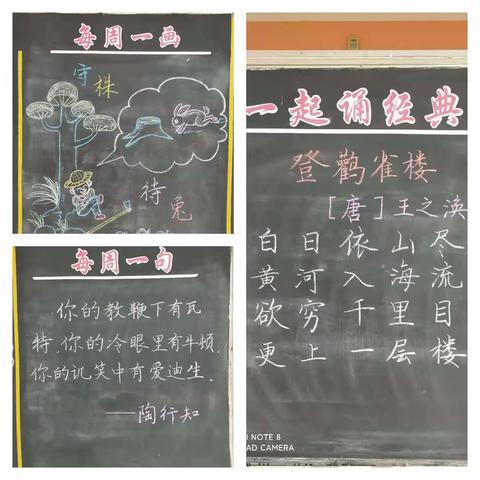 每周一画
守株
待兔
每周一句
你的教鞭下有瓦
特.你的冷眼里有牛顿.
你的讥笑中有爱迪生.
——陶行知
一起诵经典
登鹳雀楼
[唐]王之涣
白日依山尽
黄河入海流
欲穷千里目
更上一层楼
I NOTE 8
AD CAMERA